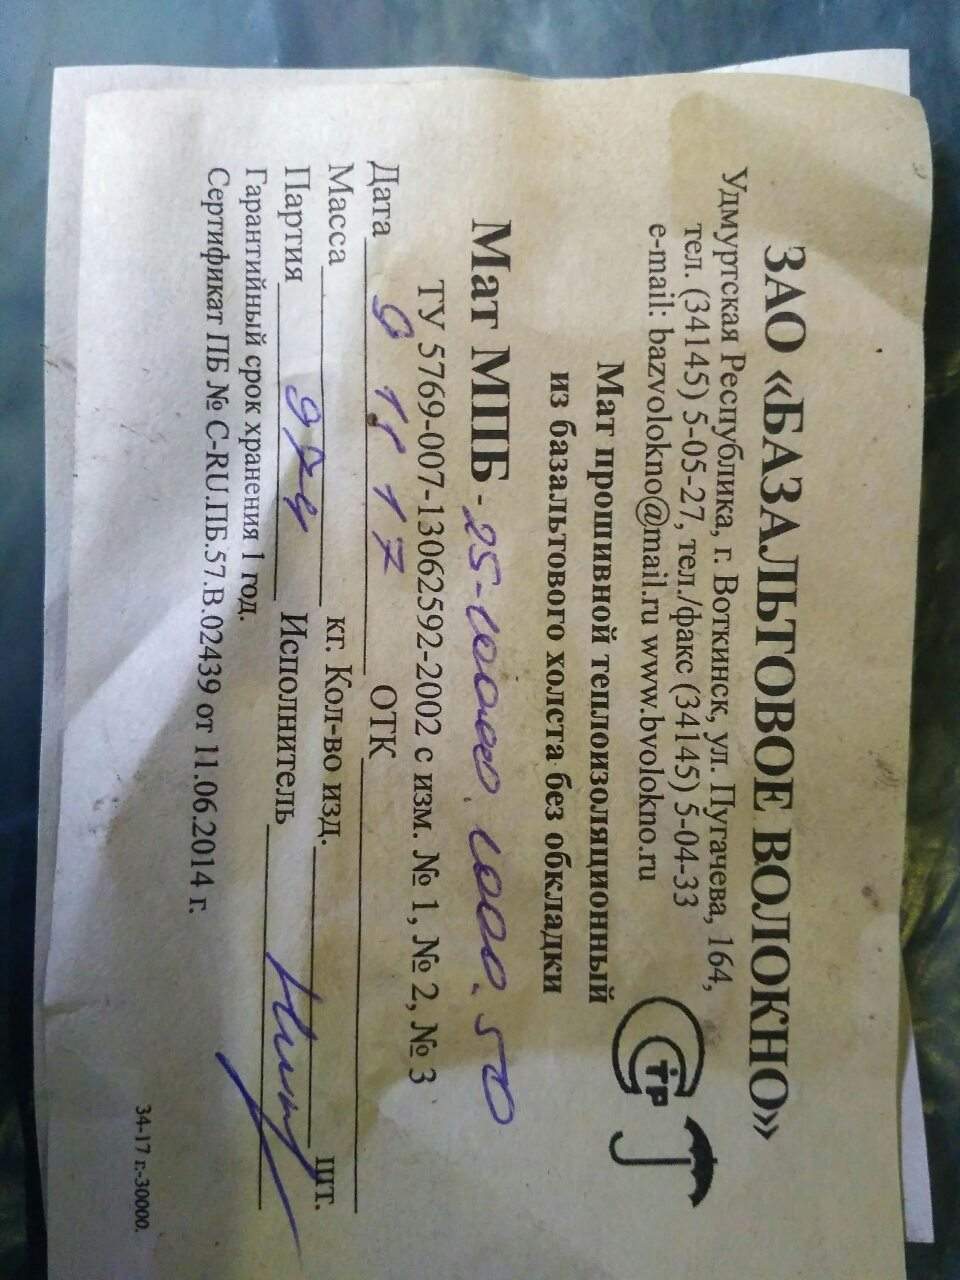 ЗАО «БАЗАЛЬТОВОЕ ВОЛОКНО»
Удмуртская Республика, г. Воткинск, ул. Пугачева, 164,
тел. (34145) 5-05-27, тел./факс (34145) 5-04-33
e-mail: bazvolokno@mail.ru www.bvolokno.ru
Мат прошивной теплоизоляционный
из базальтового холста без обкладки
ТР
Мат МПБ - 25-
ТУ 5769-007-13062592-2002 с изм. № 1, № 2, № 3
Дата 9 11 17 ОТК
Масса кг. Кол-во изд. шт.
Партия Исполнитель
Гарантийный срок хранения 1 год.
Сертификат ПБ № C-RU.ПБ.57.В.02439 от 11.06.2014 г.
34-17 г.-30000.